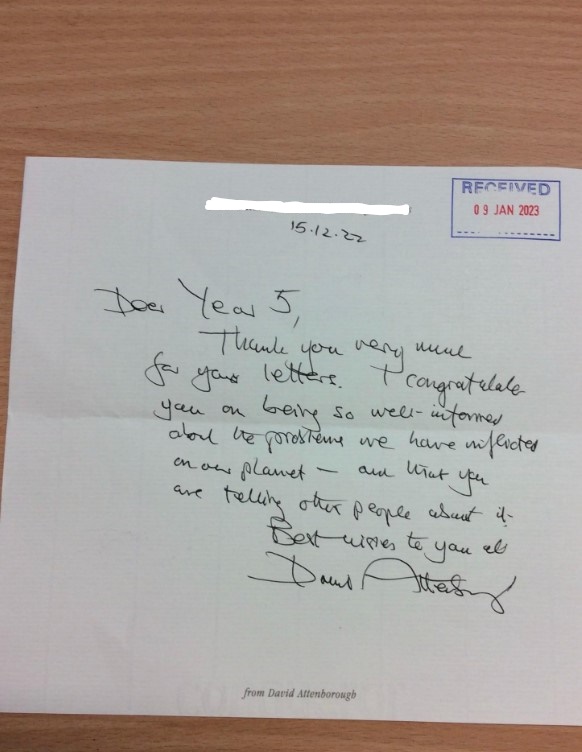 RECEIVED
09 JAN 2023
15.12.22
Dear Year 5,
Thank you very much
for your letters. I congratulate
you on being so well-informed
about the problems we have inflicted
on our planet – and that you
are telling other people about it.
Best wishes to you all
David Attenborough
from David Attenborough